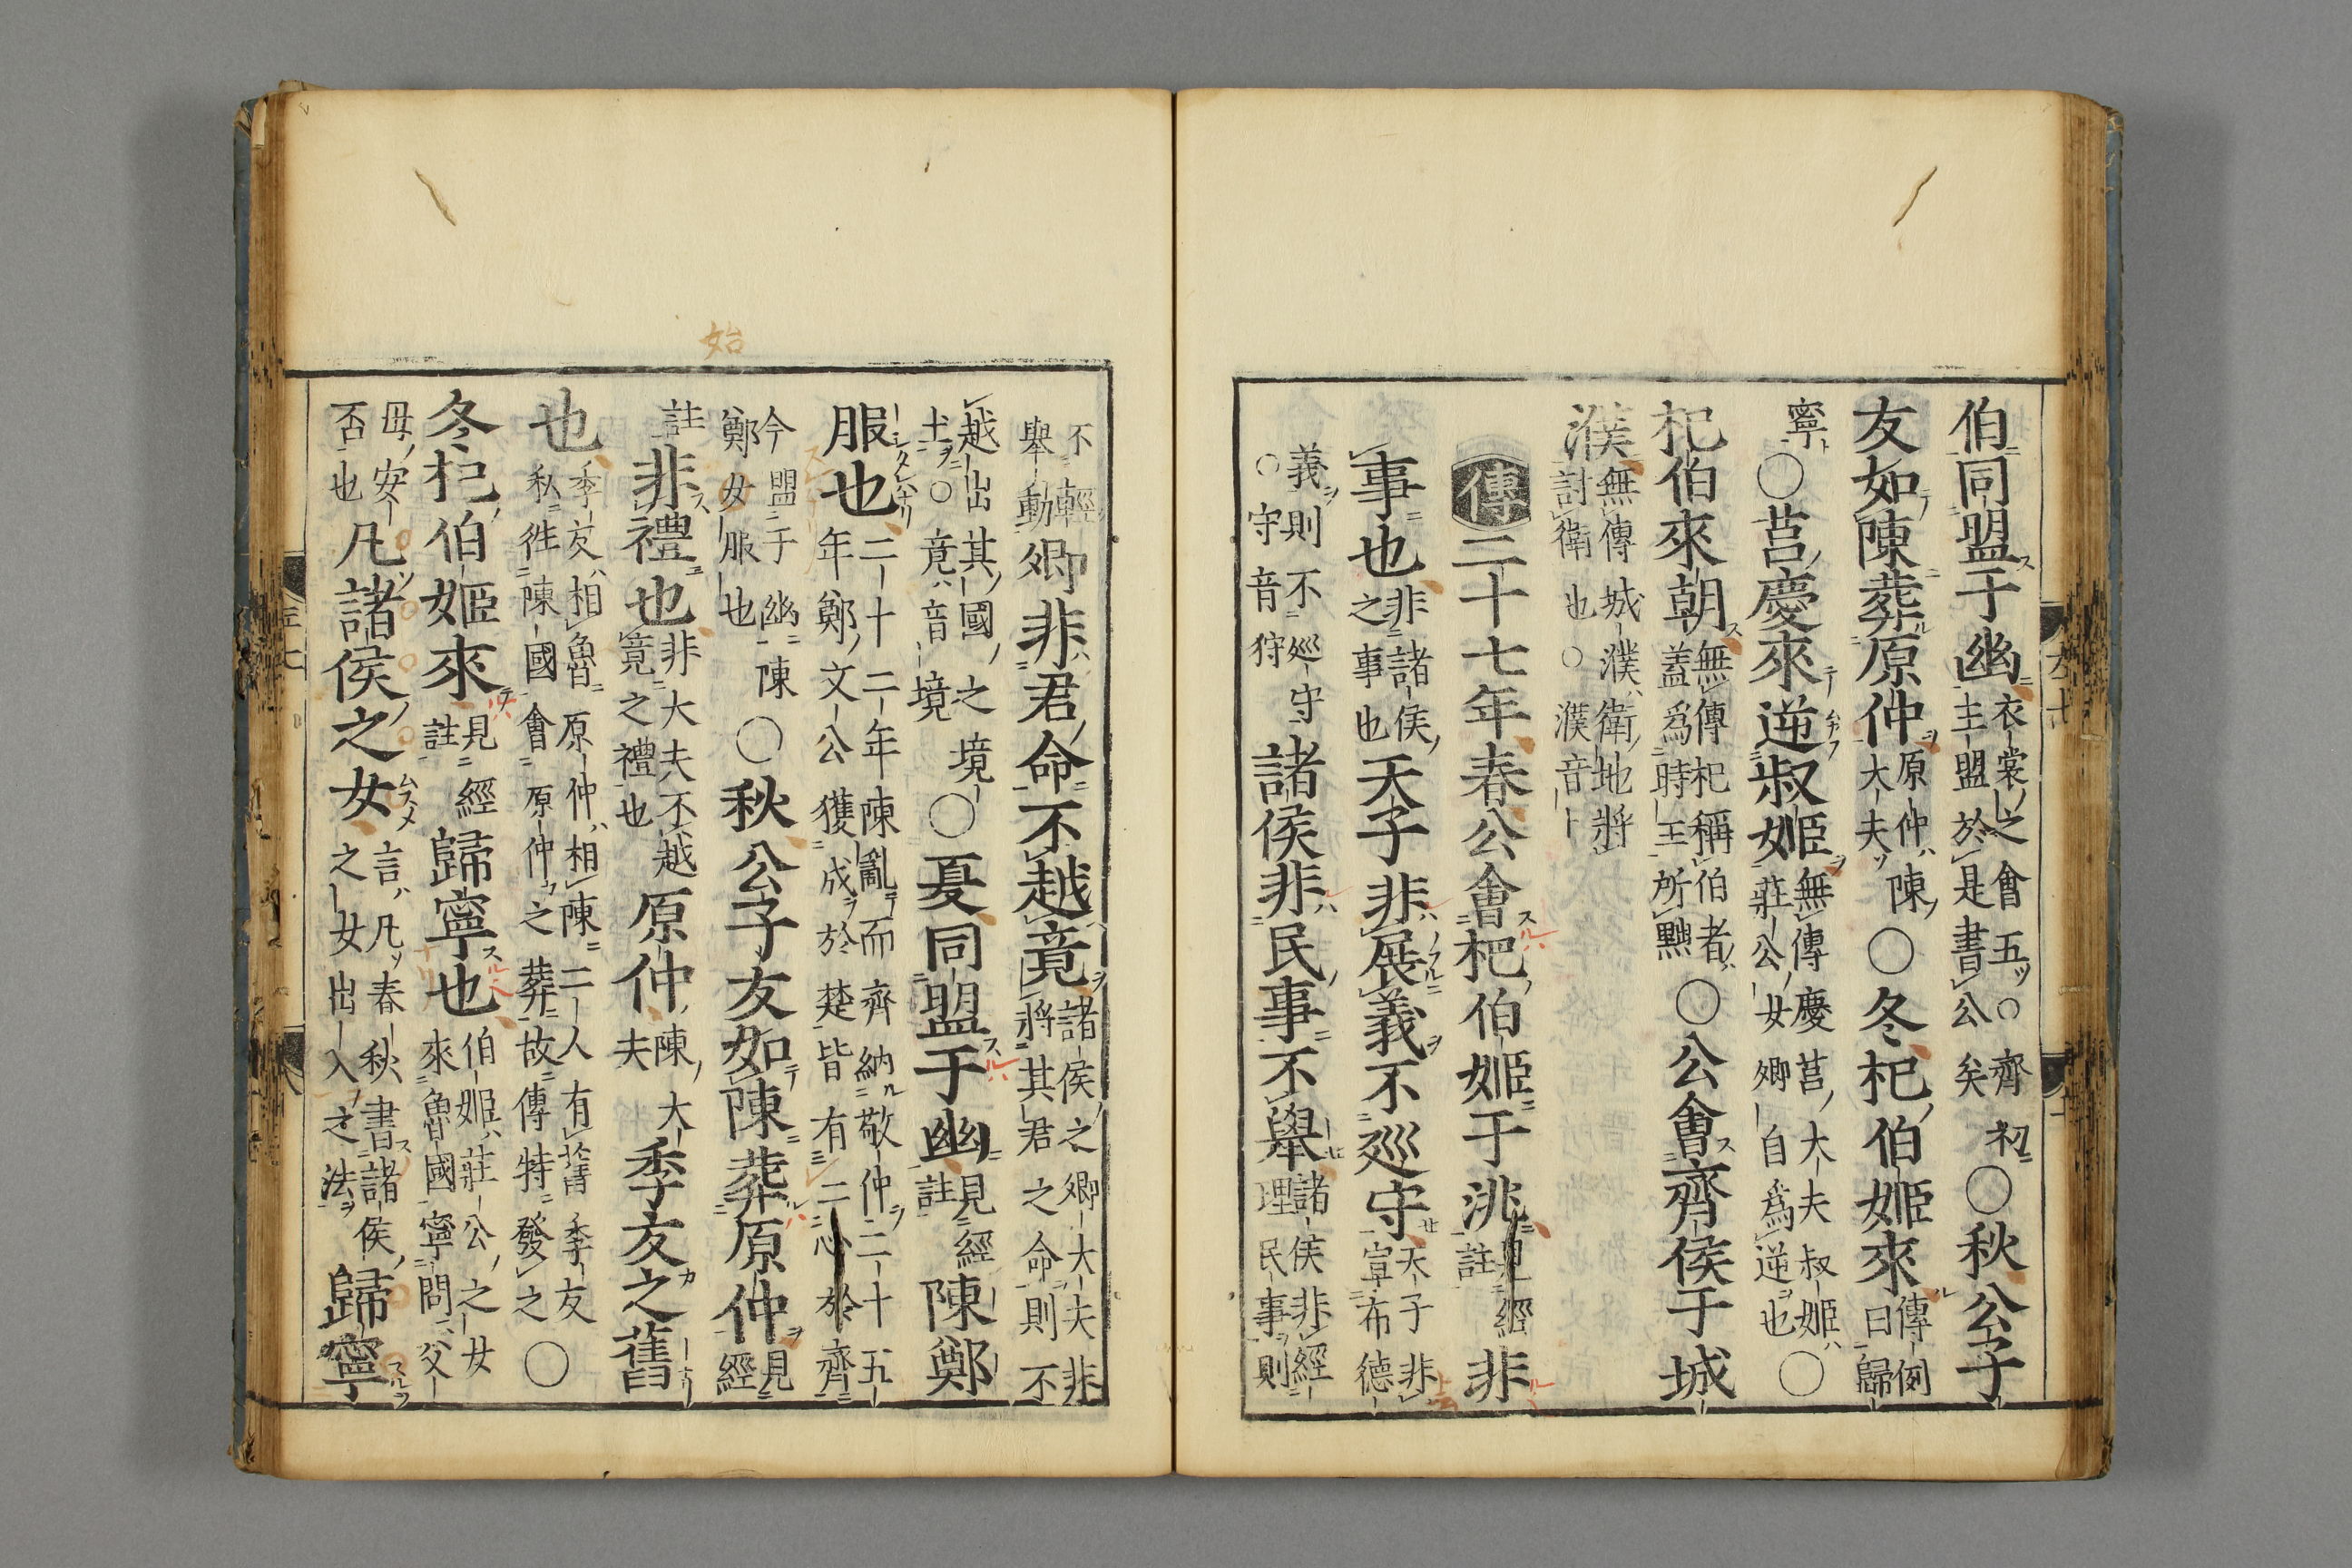 伯同盟于幽衣裳之會五○齊矦初主盟於是書公○秋公子
友如陳葬原仲原仲陳大夫○冬杞伯姬來傳例曰歸
寧○莒慶來逆叔姬無傳慶莒大夫叔姬莊公女卿自為逆也○
杞伯來朝無傳杞稱伯者蓋為時王所黜○公會齊侯于城
濮無傳城濮衛地將討衛也○濮音卜
傳二十七年春公會杞伯姬于洮見經註非
事也非諸侯之事也天子非展義不巡守天子非宣布德
義則不巡守○守音狩諸侯非民事不舉諸侯非經理民事則
不輕舉動卿非君命不越竟諸侯之卿大夫非將其君之命則不
越出其國之境土○竟音境○夏同盟于幽見經註陳鄭
服也二十二年陳亂而齊納敬仲二十五年鄭文公獲成於楚皆有二心於齊
今盟于幽陳鄭女服也○秋公子友如陳葬原仲見經
註非禮也非大夫不越竟之禮也原仲陳大夫季友之舊
也季友相魯原仲相陳二人有舊季友私往陳國會原仲之葬故傳特發之○
冬杞伯姬來見經註歸寧也伯姬莊公之女來魯國寧問父
母安否也凡諸侯之女言凡春秋書諸侯之女出入之法歸寧
始